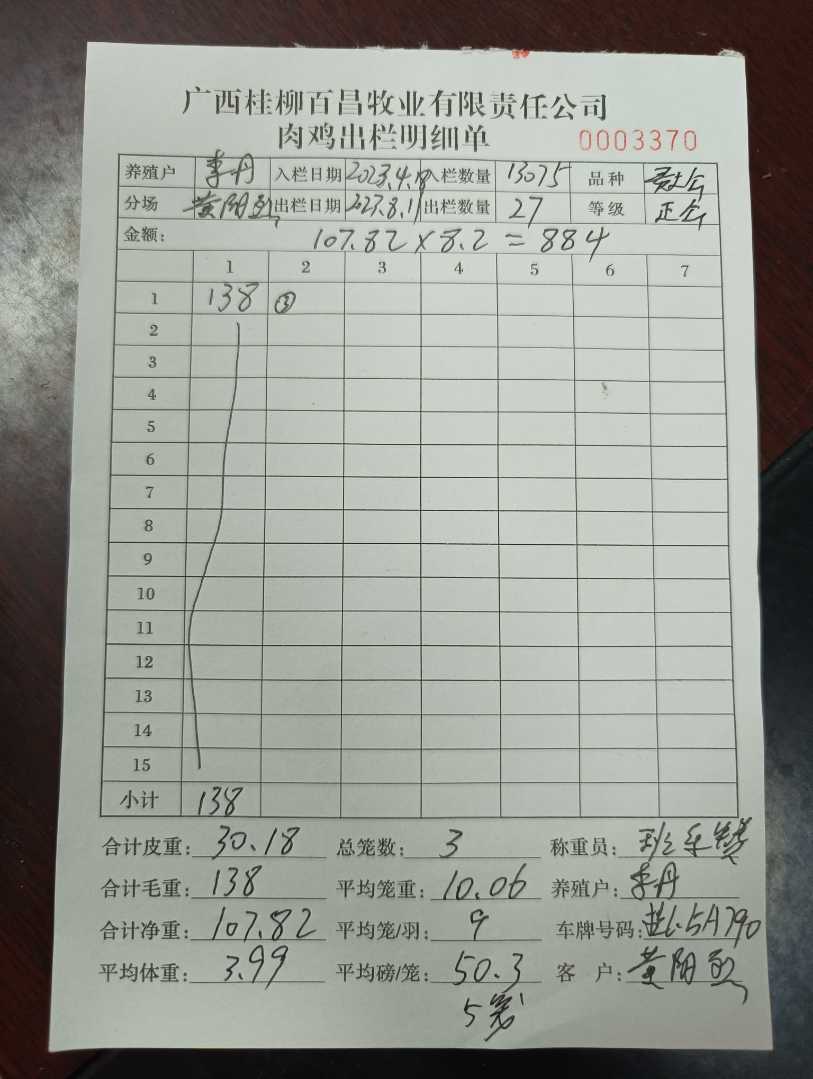 广西桂柳百昌牧业有限责任公司
肉鸡出栏明细单 0003370
养殖户 李丹 入栏日期 2023.4.18 入栏数量 13075 品种
分场 黄阳 出栏日期 2023.8.11 出栏数量 27 等级 正
金额: 107.82×8.2=884
1 2 3 4 5 6 7
1 138 ③
2
3
4
5
6
7
8
9
10
11
12
13
14
15
小计 138
合计皮重: 30.18 总笼数: 3 称重员:
合计毛重: 138 平均笼重: 10.06 养殖户: 李丹
合计净重: 107.82 平均笼/羽: 9 车牌号码: 5A790
平均体重: 3.99 平均磅/笼: 50.3 客 户: 黄阳
5